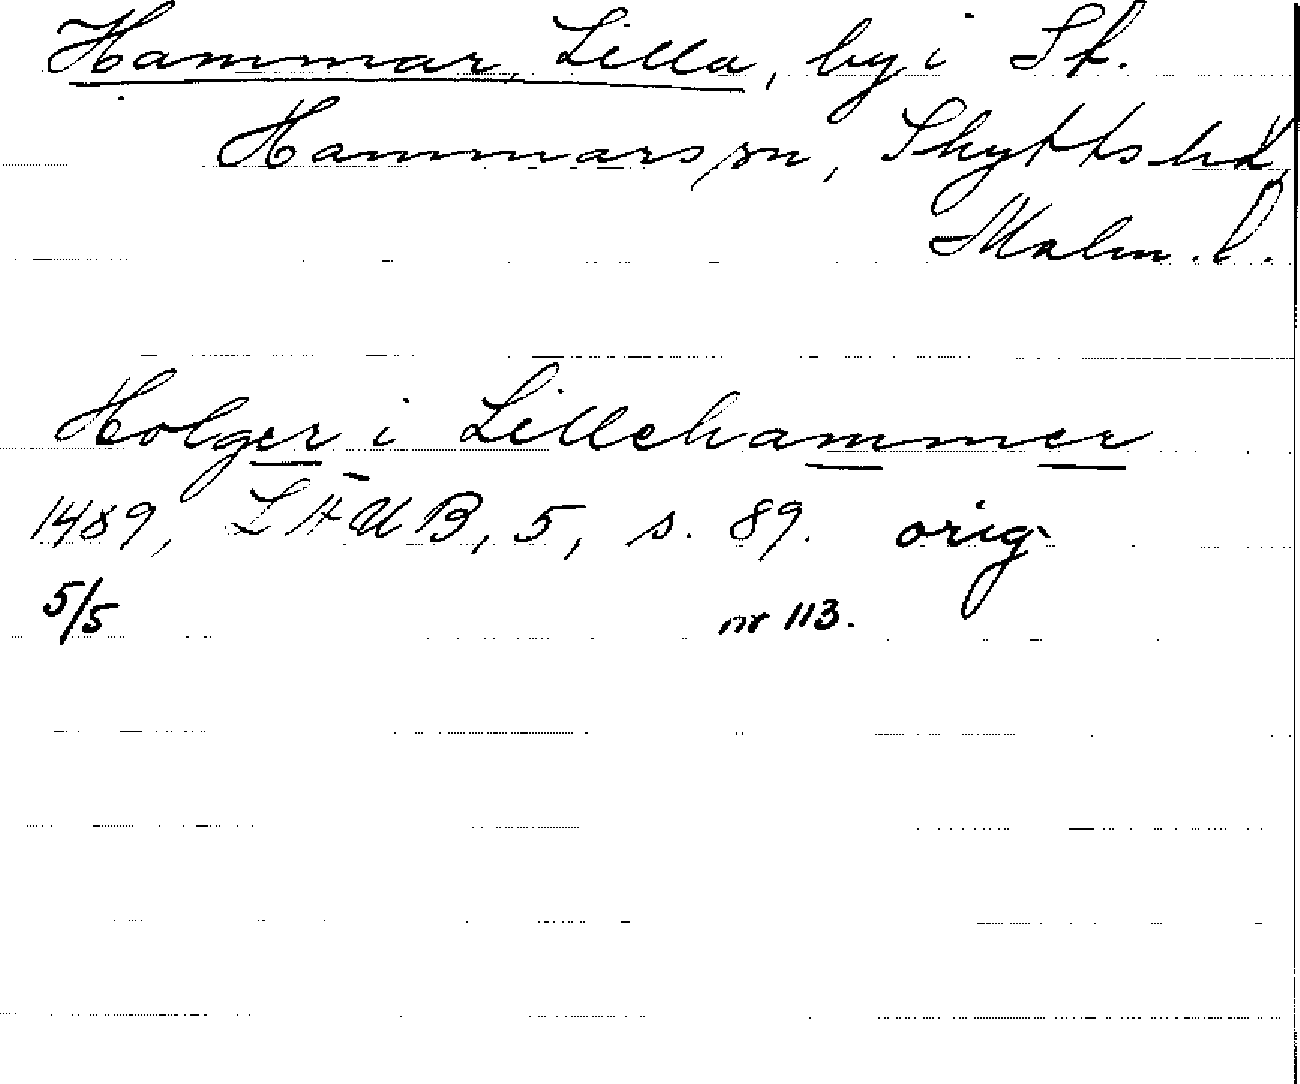 Hammar, Lilla, by i St.
Hammars sn, Skytts hd,
Malm. l.
Holger i Lillehammer
1489, LÄUB, 5, s. 89. orig
5/5 nr 113.